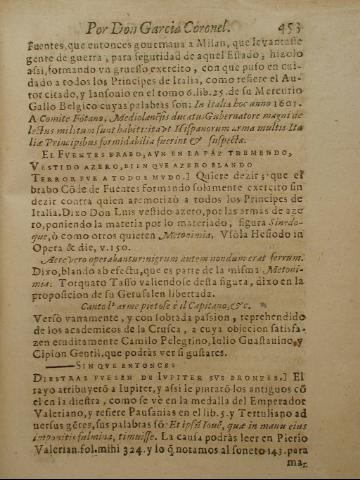 Por Don Garcia Coronel. 453
Fuentes, que entonces gouernaua a Milan, que leuantasse
gente de guerra, para seguridad de aquel Estado, hizolo
assi, formando vn gruesso exercito, con que puso en cui-
dado a todos los Principes de Italia, como refiere el Au-
tor citado, y Iansonio en el tomo 6. lib. 25. de su Mercurio
Gallo Belgico cuyas palabras son: In Italia hoc anno 1601.
A Comite Fōtano, Mediolanēsis ducatu Gubernatore magni de
lectus militum sunt habiti: ita vt Hispanorum arma multis Ita
liæ Principibus formidabilia fuerint & suspecta.
EL FVENTES BRABO, AVN EN LA PAZ TREMENDO,
VESTIDO AZERO, BIEN QVE AZERO BLANDO
TERROR FVE A TODOS MVDO.] Quiere dezir, que el
brabo Cōde de Fuentes formando solamente exercito sin
dezir contra quien atemorizò a todos los Principes de
Italia. Dixo Don Luis vestido azero, por las armas de aze
ro, poniendo la materia por lo materiado, figura Sinedo-
que, ò como otros quieren Metonimia. Vsòla Hesiodo in
Opera & die, v. 150.
Aere vero operabantur: nigrum autem nondum erat ferrum.
Dixo, blando ab efectu, que es parte de la misma Metoni-
mia. Torquato Tasso valiendose desta figura, dixo en la
proposicion de su Gerusalen libertada.
Canto l'arme pietose è il Capitano, &c.
Verso vanamente, y con sobrada passion, reprehendido
de los academicos de la Crusca, a cuya objecion satisfa-
zen eruditamente Camilo Pelegrino, Iulio Guastauino, y
Cipion Gentil, que podràs ver si gustares.
SIN QVE ENTONCES
DIESTRAS FVESSEN DE IVPITER SVS BRONTES.] El
rayo atribuyerō a Iupiter, y assi le pintarō los antiguos cō
el en la diestra, como se vè en la medalla del Emperador
Valeriano, y refiere Pausanias en el lib. 5. y Tertuliano ad
uersus gētes, sus palabras sō: Et ipsū Iouē, quæ in manu eius
imponitis fulmina, timuisse. La causa podràs leer en Pierio
Valerian. fol. mihi 324. y lo q̄ notamos al soneto 143. para
mar